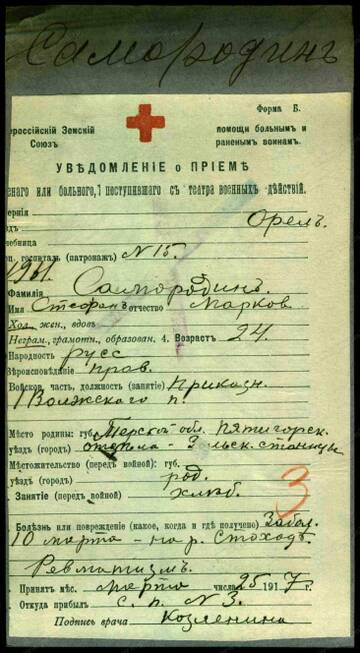 Самородинъ
Форма Б.
ероссійскій Земскій
Союзъ
помощи больнымъ и
раненымъ воинамъ.
УВѢДОМЛЕНІЕ о ПРІЕМѢ
енаго или больного, поступившаго съ театра военныхъ дѣйствій.
ернія
Орелъ.
чебница
госпиталь (патронажъ) №15.
Фамилія Самородинъ.
Имя Стефанъ отчество Марков
Хол. жен., вдов
Неграм., грамотн., образован. 4. Возрастъ 24
Народность русс
Вѣроисповѣданіе прав.
Войсков. часть, должность (занятіе) Приказн.
1 Волжскаго п.
Мѣсто родины: губ. Терской обл. Пятигорск.
уѣздъ (городъ) отдѣла - станицы
Мѣстожительство (передъ войной): губ.
уѣздъ (городъ) род.
Занятіе (передъ войной) хлѣб.
3
Болѣзнь или поврежденіе (какое, когда и гдѣ получено) Забол.
10 марта - на р. Стоходъ.
Ревматизмъ.
Принятъ мѣс. марта числа 25 1917 г.
Откуда прибылъ с. п. №3.
Подпись врача Козленина